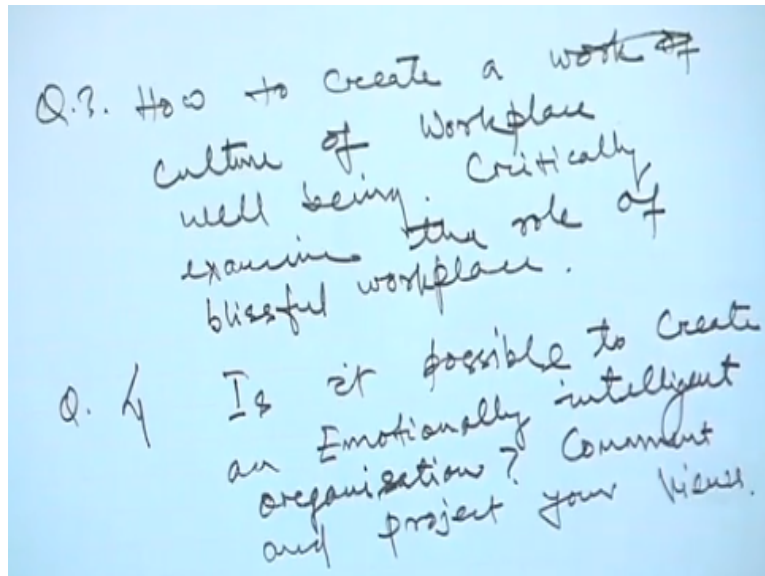 Q.3. How to create a
culture of Workplace
well being. Critically
examine the role of
blissful workplace.
Q. 4 Is it possible to create
an Emotionally intelligent
organisation? Comment
and project your views.